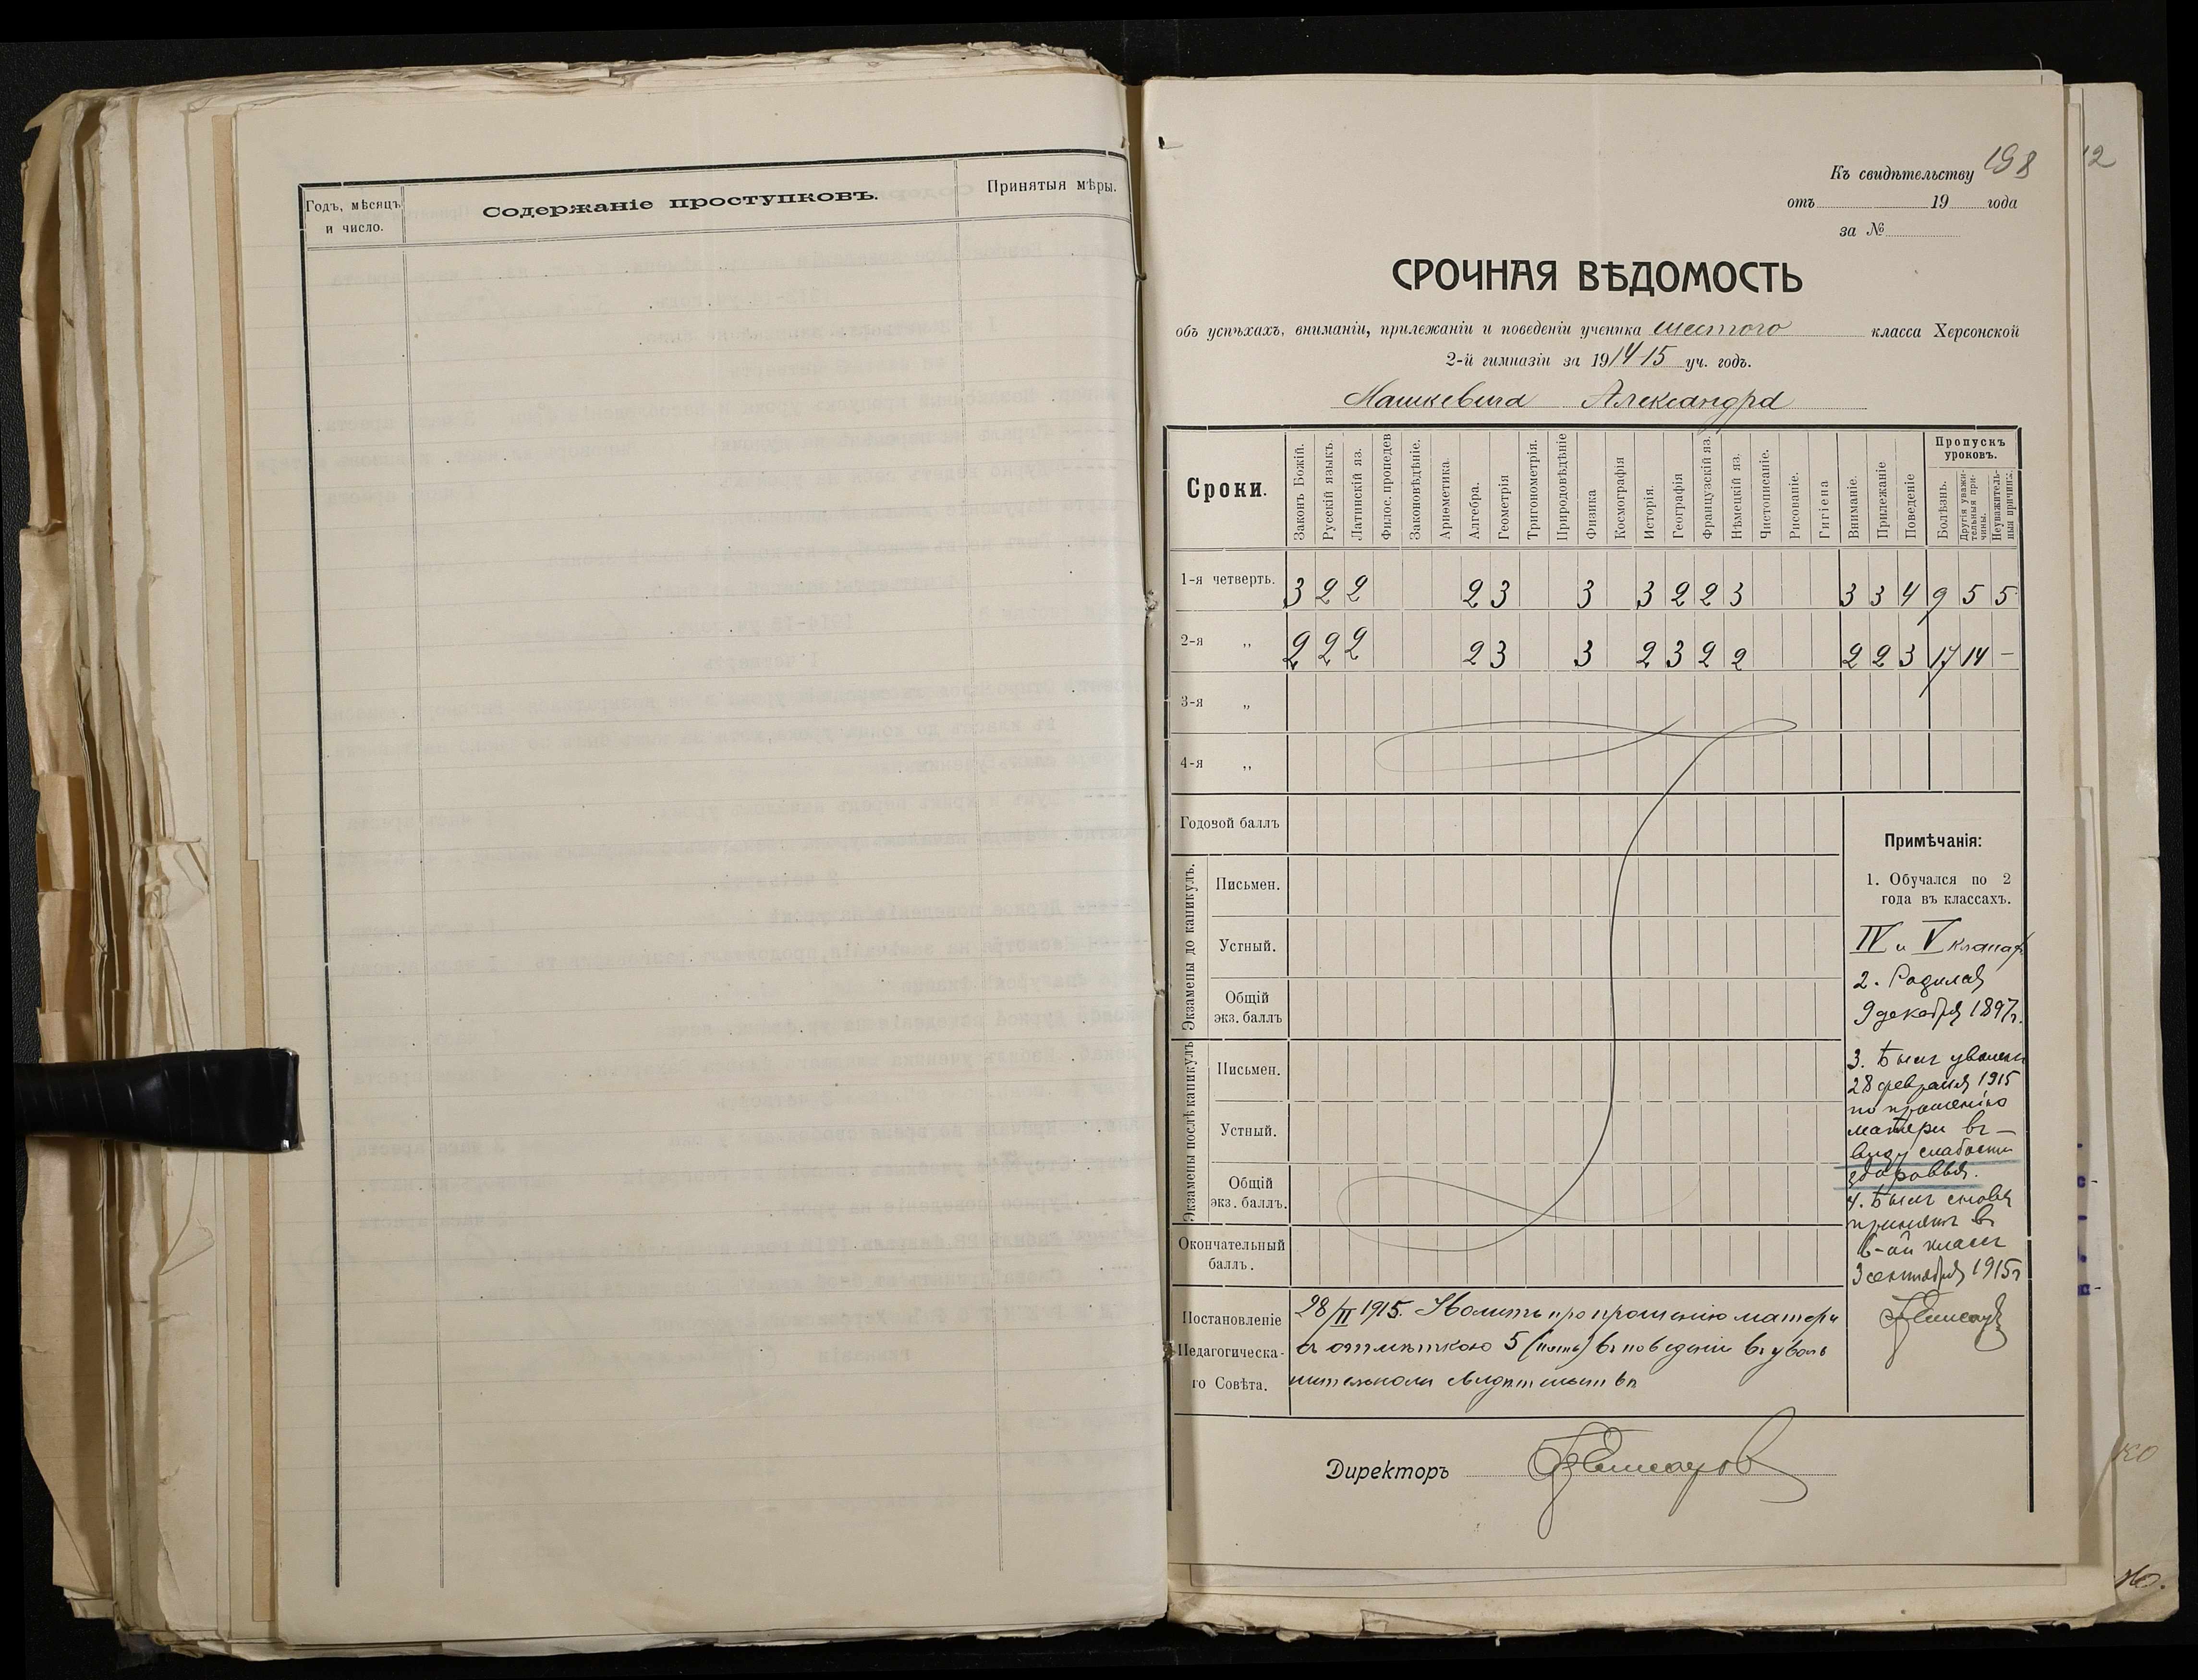 Годъ, мѣсяцъ
и число.
Содержаніе проступковъ.
Принятыя мѣры.
Къ свидѣтельству 198
12
отъ 19 года
за №
СРОЧНАЯ ВѢДОМОСТЬ
объ успѣхахъ, вниманіи, прилежаніи и поведеніи ученика шестого класса Херсонской
2-й гимназіи за 1914-15 уч. годъ.
Александра
Сроки.
Законъ Божій.
Русскій языкъ.
Латинскій яз.
Филос. пропедев
Законовѣдѣніе.
Ариѳметика.
Алгебра.
Геометрія
Тригонометрія.
Природовѣдѣніе
Физика
Космографія
Исторія.
Географія
Французскій яз.
Нѣмецкій яз.
Чистописаніе.
Рисованіе.
Гигіена
Вниманіе.
Прилежаніе
Поведеніе
Пропускъ
уроковъ.
Болѣзнь.
Другія уважи-
тельныя при-
чины.
Неуважитель-
ныя причины.
1-я четверть. 3 2 2 2 3 3 3 2 2 3 3 3 4 9 5 5
2-я „ 2 2 2 2 3 3 2 3 2 2 2 2 3 17 14 —
3-я „
4-я „
Годовой баллъ
Экзамены до каникулъ.
Письмен.
Устный.
Общій
экз. баллъ
Экзамены послѣ каникулъ
Письмен.
Устный.
Общій
экз. баллъ.
Окончательный
баллъ.
Примѣчанія:
1. Обучался по 2
года въ классахъ.
IV и V классахъ
2. Родился
9 декабря 1897 г.
3. Былъ уволенъ
28 февраля 1915
по прошенію
матери въ-
виду слабости
здоровья.
4. Былъ снова
принятъ въ
6-ой классъ
3 сентября 1915 г
Постановленіе
Педагогическа-
го Совѣта.
28/II 1915. Уволить по прошенію матери
съ отмѣткою 5 (пять) въ поведеніи въ уволь
нительномъ свидѣтельствѣ
Директоръ